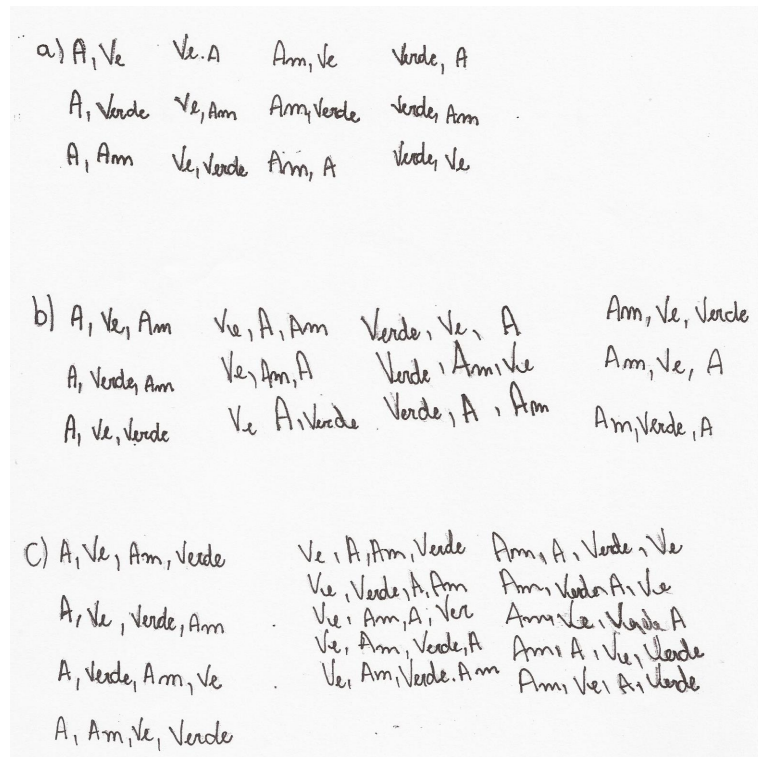 a) A, Ve Ve.A Am, Ve Verde, A
A, Verde Ve, Am Am, Verde Verde, Am
A, Am Ve, Verde Am, A Verde, Ve
b) A, Ve, Am Ve, A, Am Verde, Ve, A Am, Ve, Verde
A, Verde, Am Ve, Am, A Verde, Am, Ve Am, Ve, A
A, Ve, Verde Ve A, Verde Verde, A, Am Am, Verde, A
c) A, Ve, Am, Verde Ve, A, Am, Verde Am, A, Verde, Ve
Ve, Verde, A, Am Am, Verde A, Ve
A, Ve, Verde, Am Ve, Am, A, Ver Am, Ve, Verde A
Ve, Am, Verde, A Am, A, Ve, Verde
A, Verde, Am, Ve Ve, Am, Verde. Am Am, Ve, A, Verde
A, Am, Ve, Verde